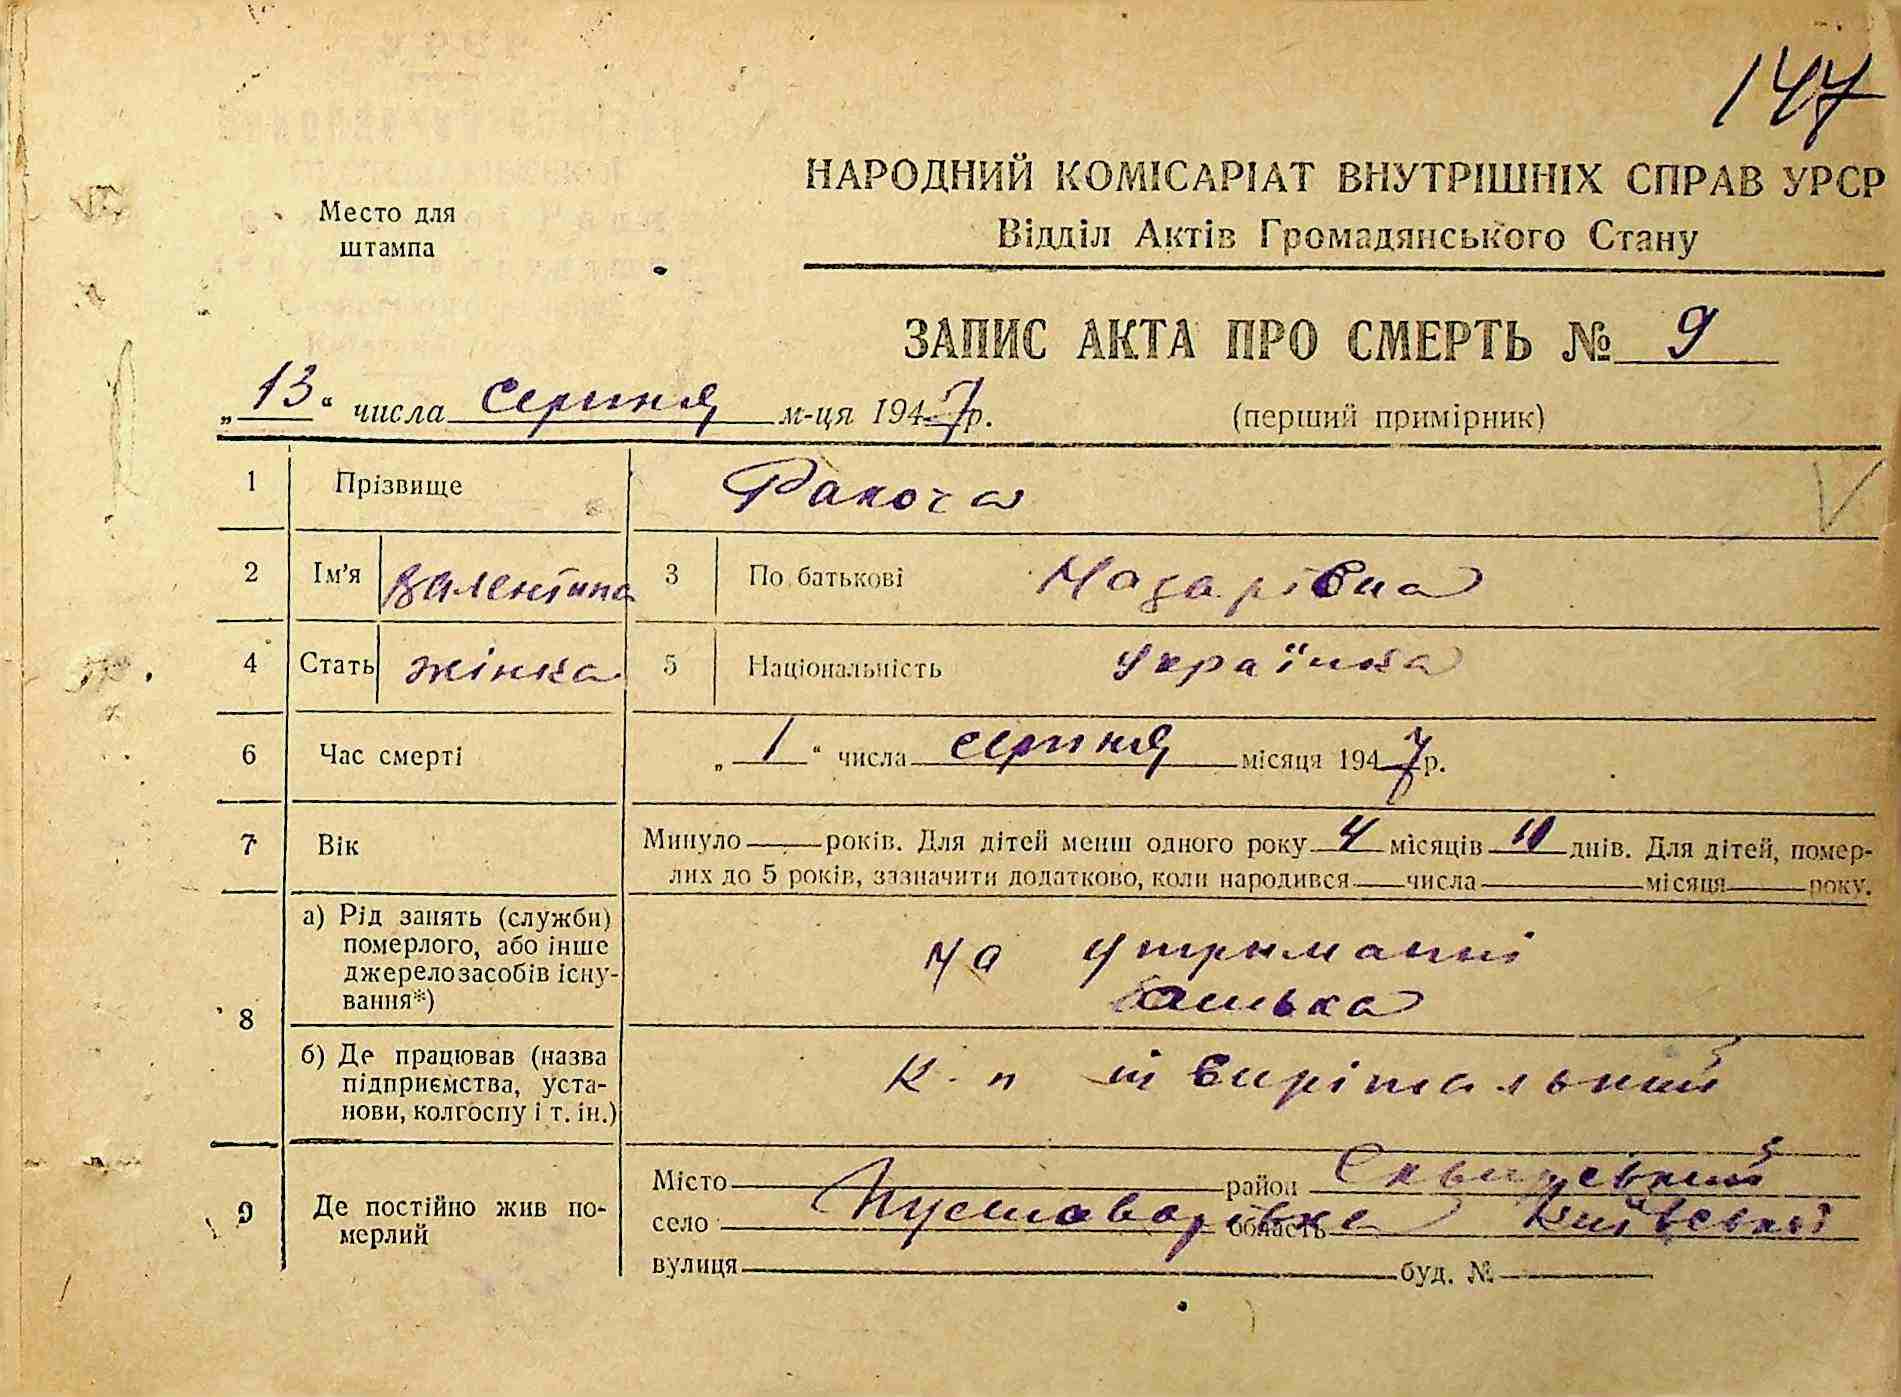 147
НАРОДНИЙ КОМІСАРІАТ ВНУТРІШНІХ СПРАВ УРСР
Відділ Актів Громадянського Стану
Место для
штампа
ЗАПИС АКТА ПРО СМЕРТЬ № 9
„13“ числа серпня м-ця 1947 р.
(перший примірник)
1 Прізвище
2 Ім'я Валентина 3 По батькові Назарівна
4 Стать жінка 5 Національність Українка
6 Час смерті „1“ числа серпня місяця 1947 р.
7 Вік Минуло — років. Для дітей менш одного року 4 місяців 10 днів. Для дітей, помер-
лих до 5 років, зазначити додатково, коли народився — числа — місяця — року.
8 а) Рід занять (служби)
померлого, або інше
джерело засобів існу-
вання*)
на утриманні
батька
б) Де працював (назва
підприємства, уста-
нови, колгоспу і т. ін.)
к-п
9 Де постійно жив по-
мерлий
Місто район Сквирський
село Пустоварівка область Київської
вулиця буд. №